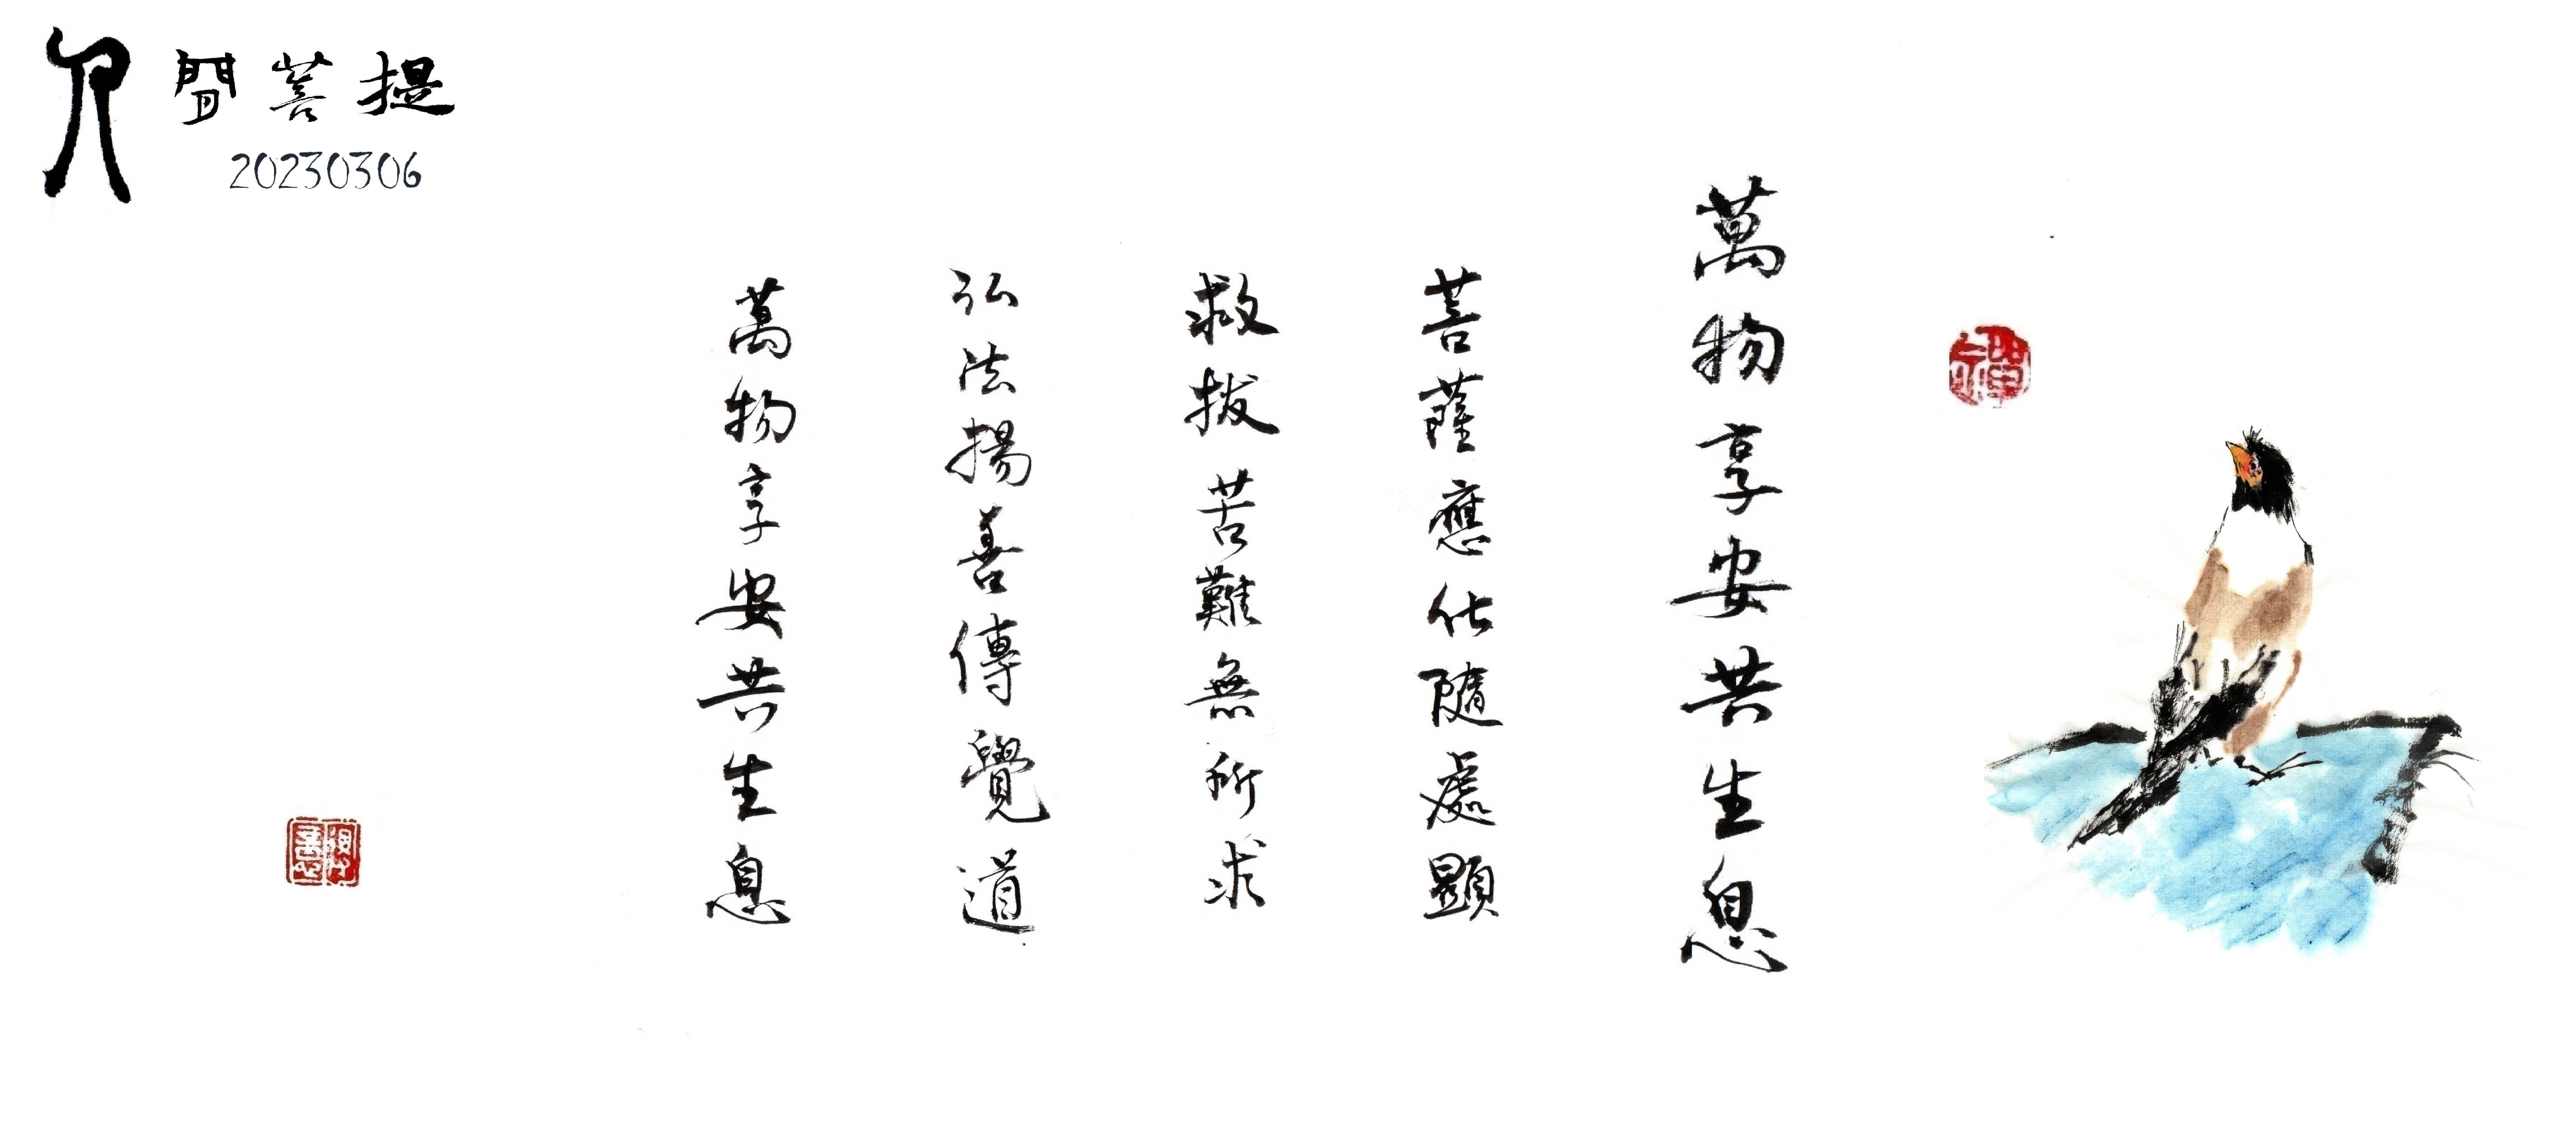 人間菩提
20230306
萬物享安共生息
菩薩應化隨處顯
救拔苦難無所求
弘法揚善傳覺道
萬物享安共生息
禪